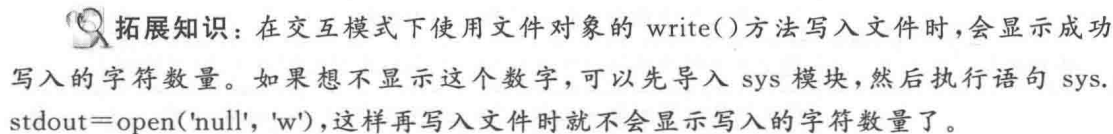 拓展知识：在交互模式下使用文件对象的 write()方法写入文件时,会显示成功
写入的字符数量。如果想不显示这个数字,可以先导入 sys 模块,然后执行语句 sys.
stdout=open('null', 'w'),这样再写入文件时就不会显示写入的字符数量了。